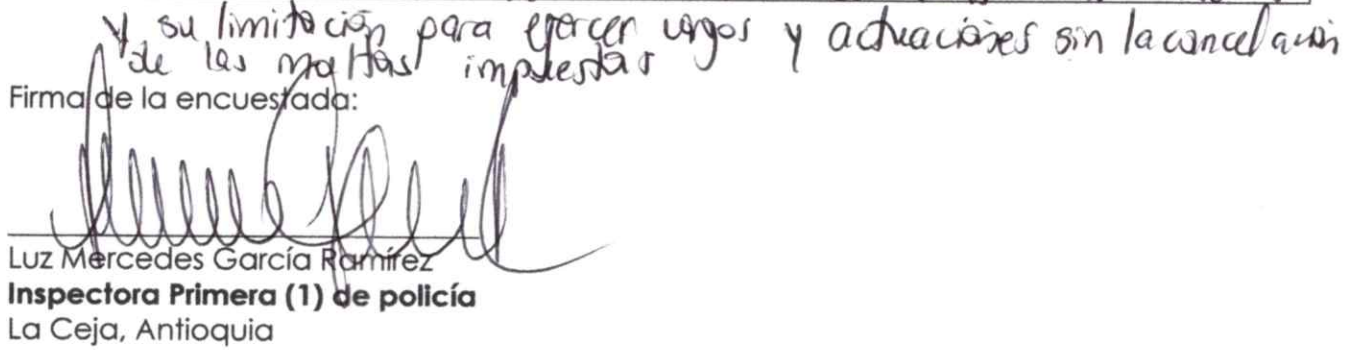 y su limitación para ejercer cargos y actuaciones sin la cancelación
de las multas impuestas
Firma de la encuestada:
Luz Mercedes García Ramírez
Inspectora Primera (1) de policía
La Ceja, Antioquia